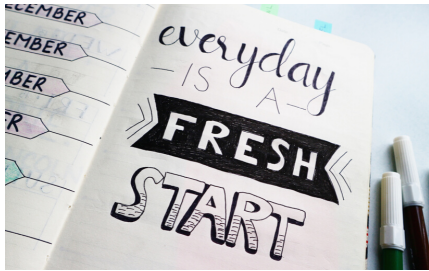 ECEMBER
EMBER
MBER
ER
everyday
-IS A-
FRESH
START